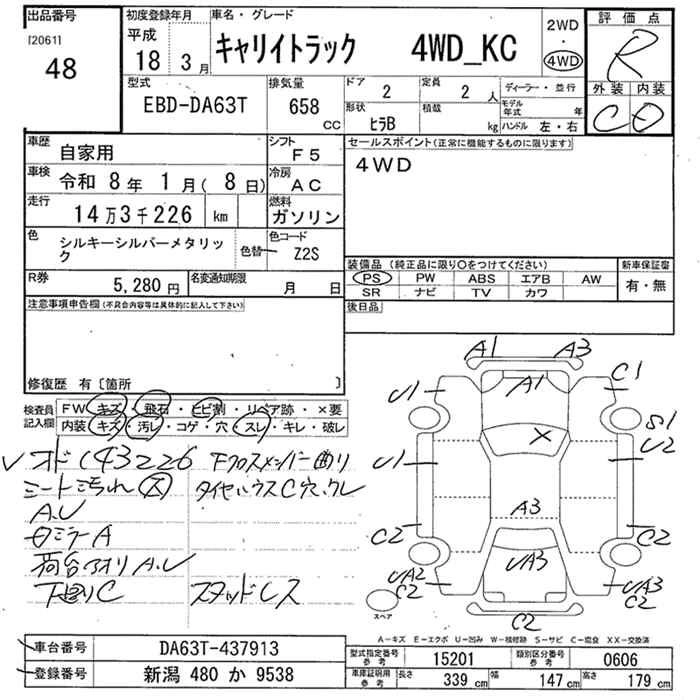 出品番号
[2061]
48
初度登録年月
平成
18 3 月
車名・グレード
キャリイトラック 4WD_KC
2WD
・
4WD
評価点
R
外装 内装
C D
型式
EBD-DA63T
排気量
658
CC
ドア
2
定員
2 人
ディーラー・並行
形状
ヒラB
積載
kg
モデル年式 年
ハンドル 左・右
車歴
自家用
シフト
F5
セールスポイント(正常に機能するものに限ります)
4WD
車検
令和 8 年 1 月( 8 日)
冷房
AC
走行
14 万 3 千 226 km
燃料
ガソリン
色
シルキーシルバーメタリック
色替
色コード
Z2S
装備品 (純正品に限り○をつけてください)
PS PW ABS エアB AW
SR ナビ TV カワ
新車保証書
有・無
R券
5,280 円
名変通知期限
月 日
後日品
注意事項申告欄(不具合内容等は具体的に記入して下さい)
修復歴 有〔箇所 〕
検査員記入欄
FW キズ・飛石・ヒビ割・リペア跡・×要
内装 キズ・汚レ・コゲ・穴・スレ・キレ・破レ
オド(143226 Fクロスメンバー曲り
シート汚れ(大) タイヤハウスC穴、クレ
A.U
ミラーA
荷台アオリA.U
下廻りC スタッドレス
A1 A3
U1 A1 C1
S1
U1 X U2
A3
C2 C2
UA3
UA2 C2 UA3 C2
C2
スペア
A-キズ E-エクボ U-凹み W-補修跡 S-サビ C-腐食 XX-交換済
車台番号
DA63T-437913
登録番号
新潟 480 か 9538
型式指定番号
参考
15201
類別区分番号
参考
0606
車庫証明用
参考
長さ 339 cm 幅 147 cm 高さ 179 cm